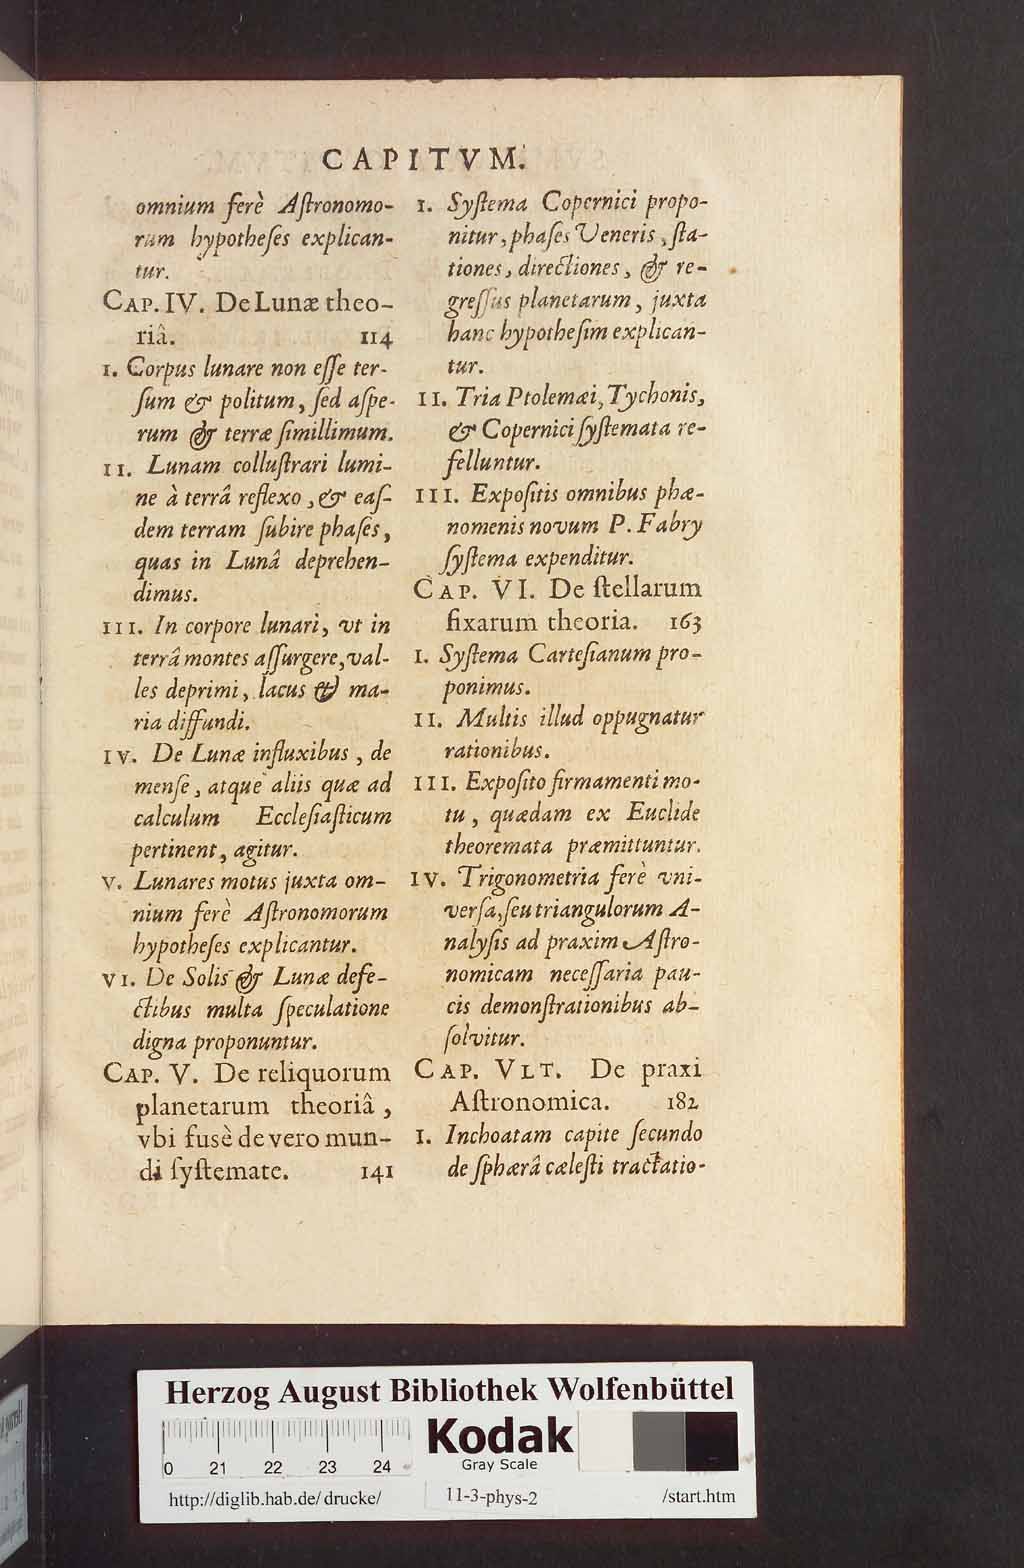 CAPITVM.
omnium ferè Aſtronomo-
rum hypotheſes explican-
tur.
CAP. IV. De Lunæ theo-
riâ. 114
I. Corpus lunare non eſſe ter-
ſum & politum, ſed aſpe-
rum & terræ ſimillimum.
II. Lunam colluſtrari lumi-
ne à terrâ reflexo, & eaſ-
dem terram ſubire phaſes,
quas in Lunâ deprehen-
dimus.
III. In corpore lunari, vt in
terrâ montes aſſurgere, val-
les deprimi, lacus & ma-
ria diffundi.
IV. De Lunæ influxibus, de
menſe, atque aliis quæ ad
calculum Eccleſiaſticum
pertinent, agitur.
V. Lunares motus juxta om-
nium ferè Aſtronomorum
hypotheſes explicantur.
VI. De Solis & Lunæ defe-
ctibus multa ſpeculatione
digna proponuntur.
CAP. V. De reliquorum
planetarum theoriâ,
vbi fusè de vero mun-
di ſyſtemate. 141
I. Syſtema Copernici propo-
nitur, phaſes Veneris, ſta-
tiones, directiones, & re-
greſſus planetarum, juxta
hanc hypotheſim explican-
tur.
II. Tria Ptolemæi, Tychonis,
& Copernici ſyſtemata re-
felluntur.
III. Expoſitis omnibus phæ-
nomenis novum P. Fabry
ſyſtema expenditur.
CAP. VI. De ſtellarum
fixarum theoria. 163
I. Syſtema Carteſianum pro-
ponimus.
II. Multis illud oppugnatur
rationibus.
III. Expoſito firmamenti mo-
tu, quædam ex Euclide
theoremata præmittuntur.
IV. Trigonometria ferè vni-
verſa, ſeu triangulorum A-
nalyſis ad praxim Aſtro-
nomicam neceſſaria pau-
cis demonſtrationibus ab-
ſolvitur.
CAP. VLT. De praxi
Aſtronomica. 182
I. Inchoatam capite ſecundo
de ſphærâ cæleſti tractatio-
Herzog August Bibliothek Wolfenbüttel
0 21 22 23 24
Kodak
Gray Scale
http://diglib.hab.de/drucke/ 11-3-phys-2 /start.htm